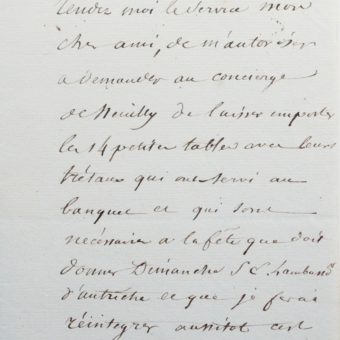 rendez moi le service mon
cher ami, de m'autoriser
a demander au concierge
de Neuilly de laisser emporter
les 14 petites tables avec leurs
trétaux qui ont servi au
banquet et qui sont
nécessaire a la fête que doit
donner Dimanche S L
d'autriche et que je ferai
réintegrer aussitot cest